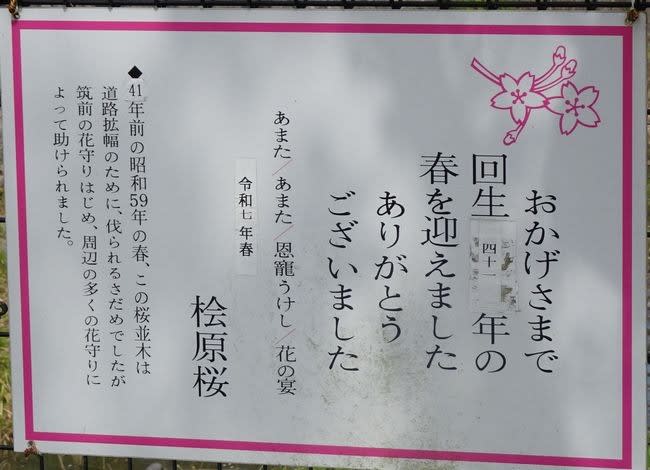 おかげさまで
回生四十一年の
春を迎えました
ありがとう
ございました
あまた/あまた/恩寵うけし/花の宴
令和七年春
桧原桜
◆41年前の昭和59年の春、この桜並木は
道路拡幅のために、伐られるさだめでしたが
筑前の花守りはじめ、周辺の多くの花守りに
よって助けられました。